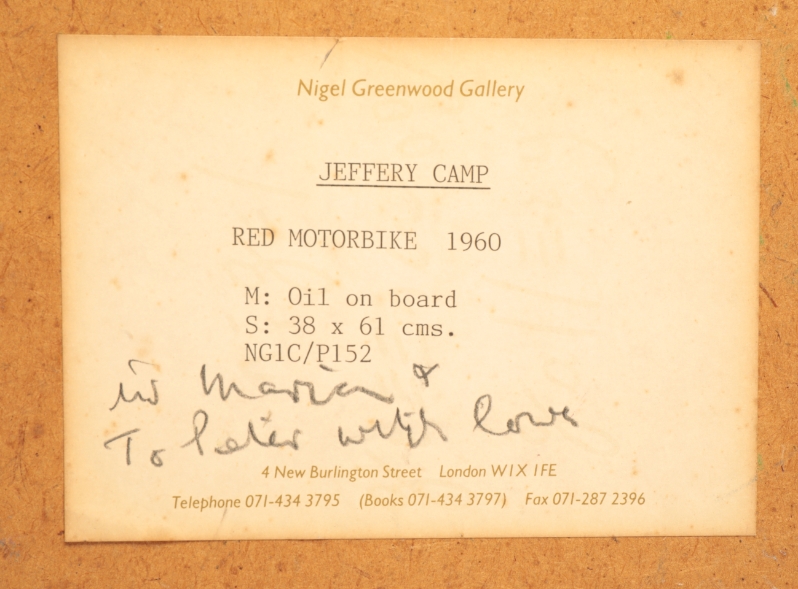 Nigel Greenwood Gallery
JEFFERY CAMP
RED MOTORBIKE 1960
M: Oil on board
S: 38 x 61 cms.
NG1C/P152
Marian &
To Peter with love
4 New Burlington Street London W1X 1FE
Telephone 071-434 3795 (Books 071-434 3797) Fax 071-287 2396